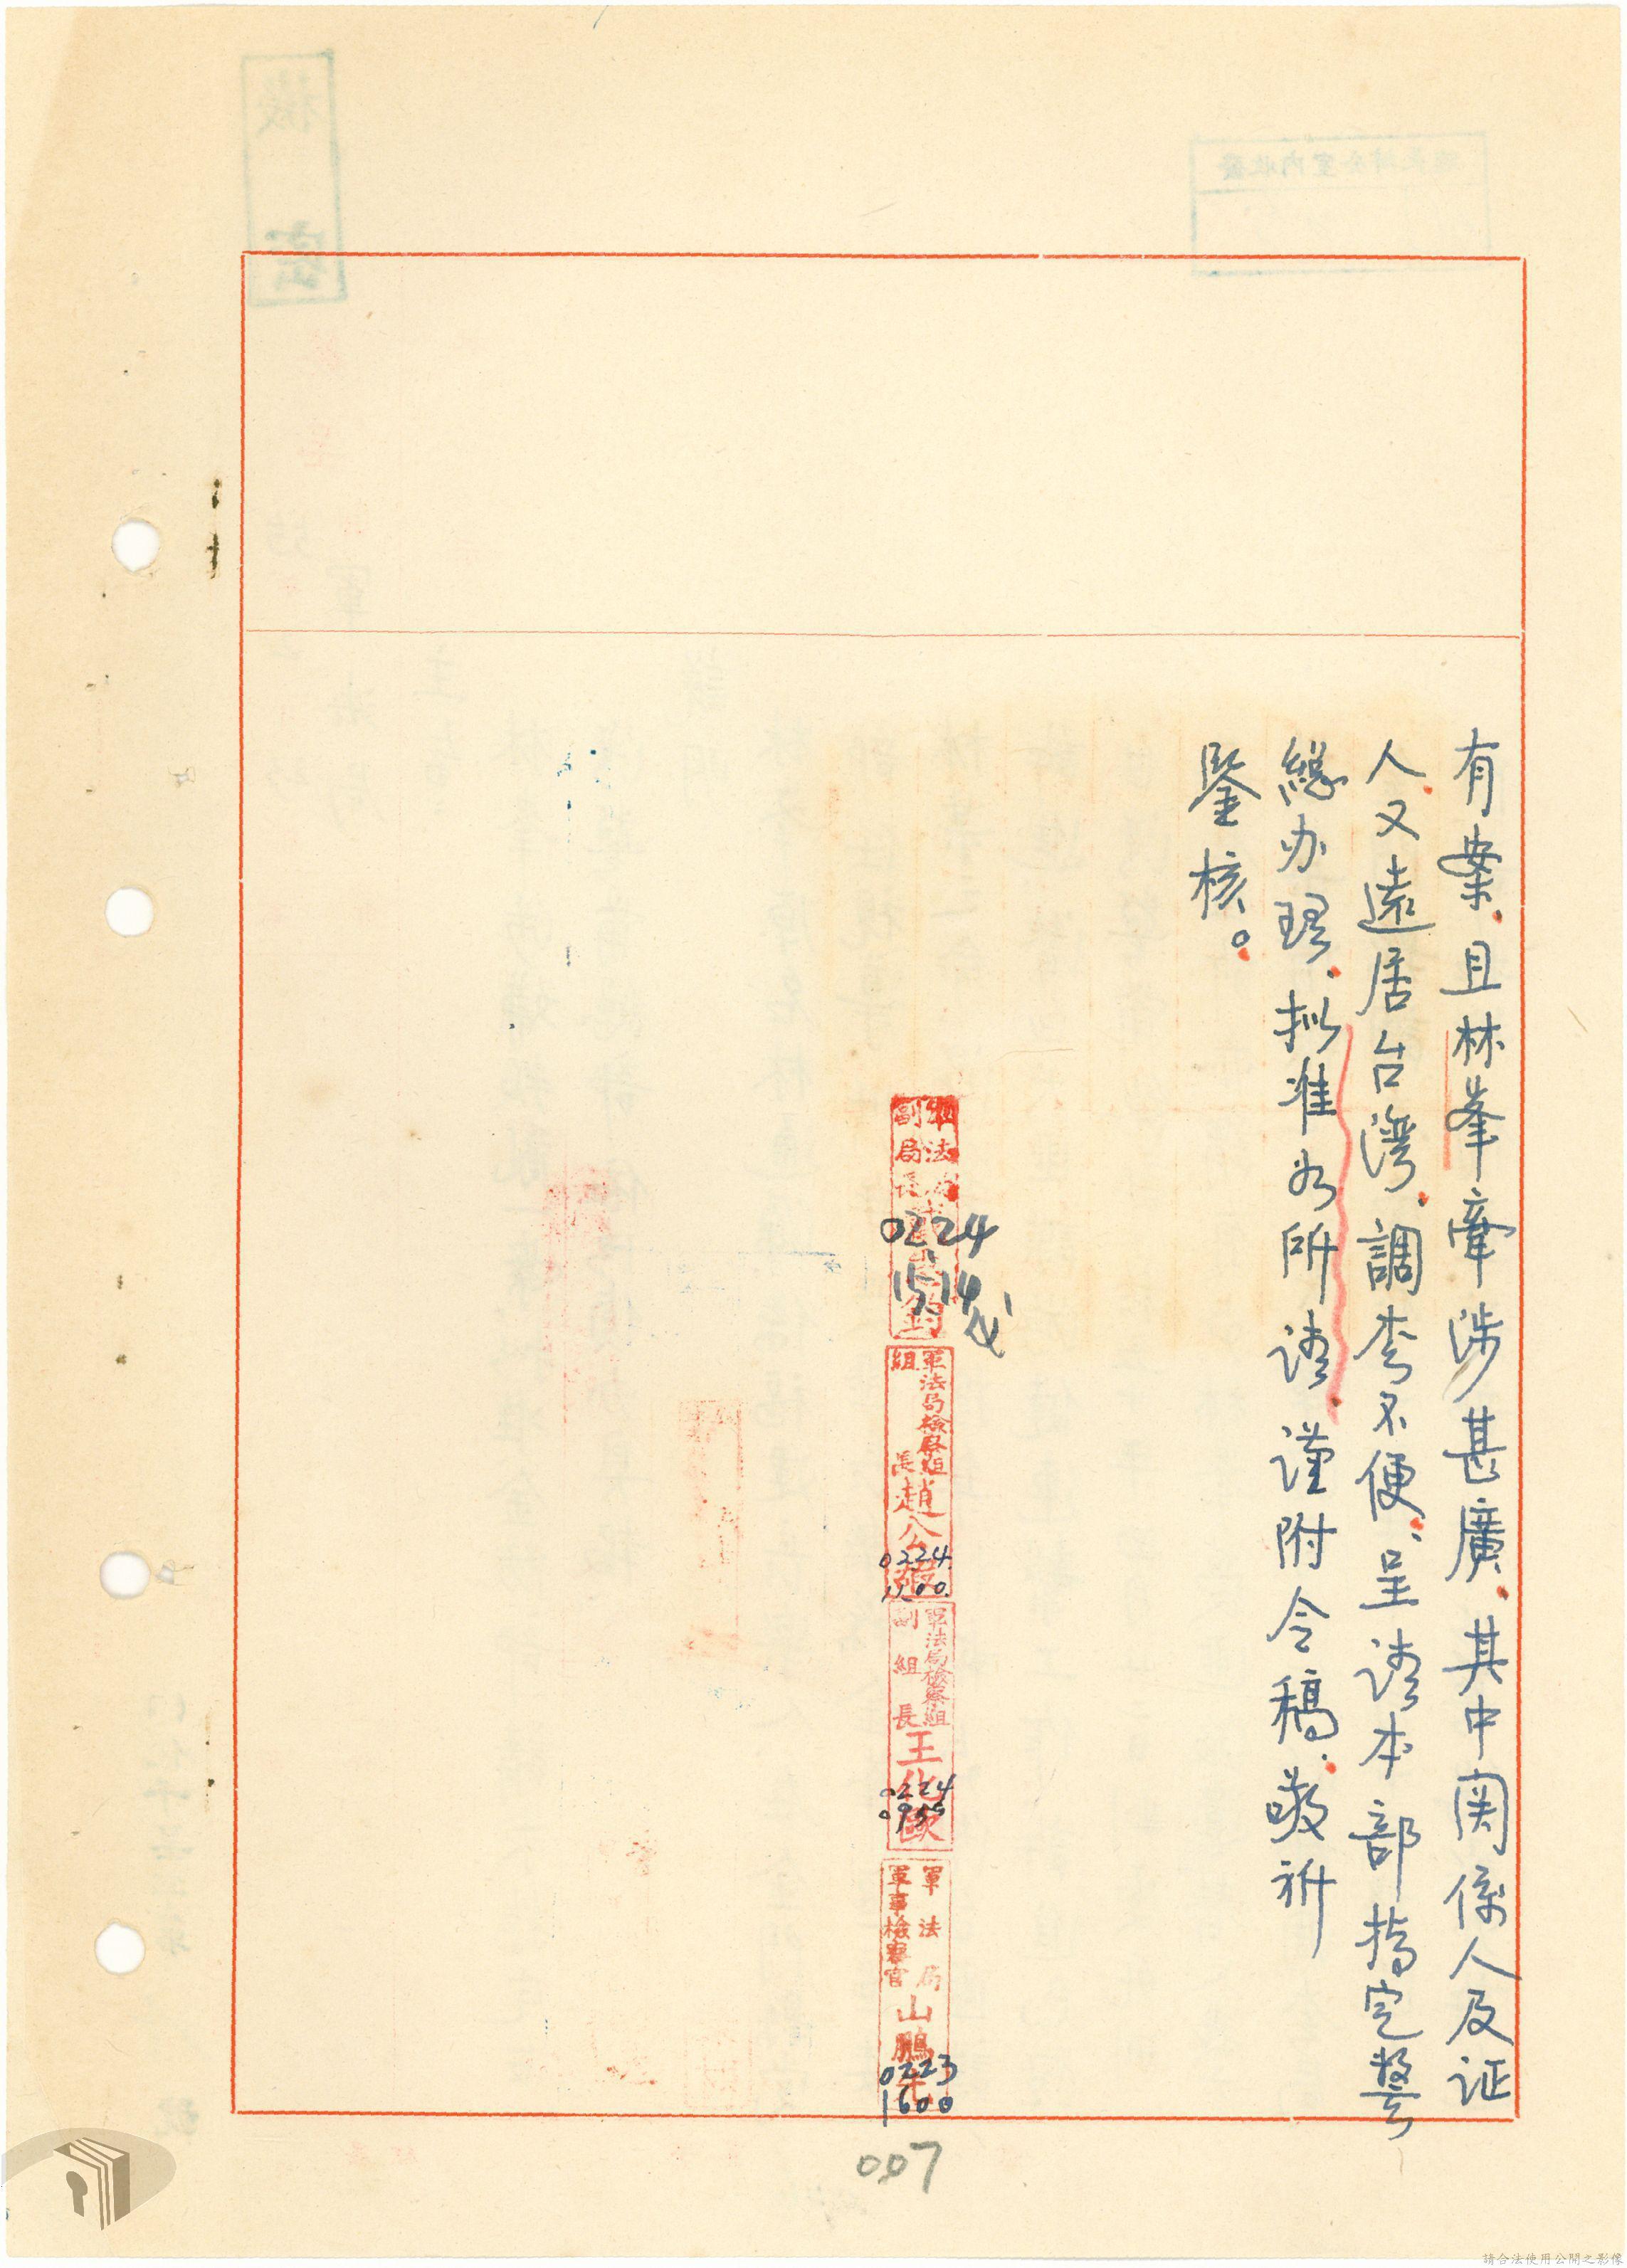 有案、且林峯牽涉甚廣、其中関係人及証
人又遠居台灣、調查不便、呈请本部指定警
總办理、拟准如所请、谨附令稿、敬祈
鑒核。
軍法局
副局長
鈞
0224
1514
軍法局檢察組
組長趙公嘏
0224
1100
軍法局檢察組
副組長王化歐
0224
0955
軍法局
軍事檢察官山鵬先
0223
1600
007
機密
請合法使用公開之影像